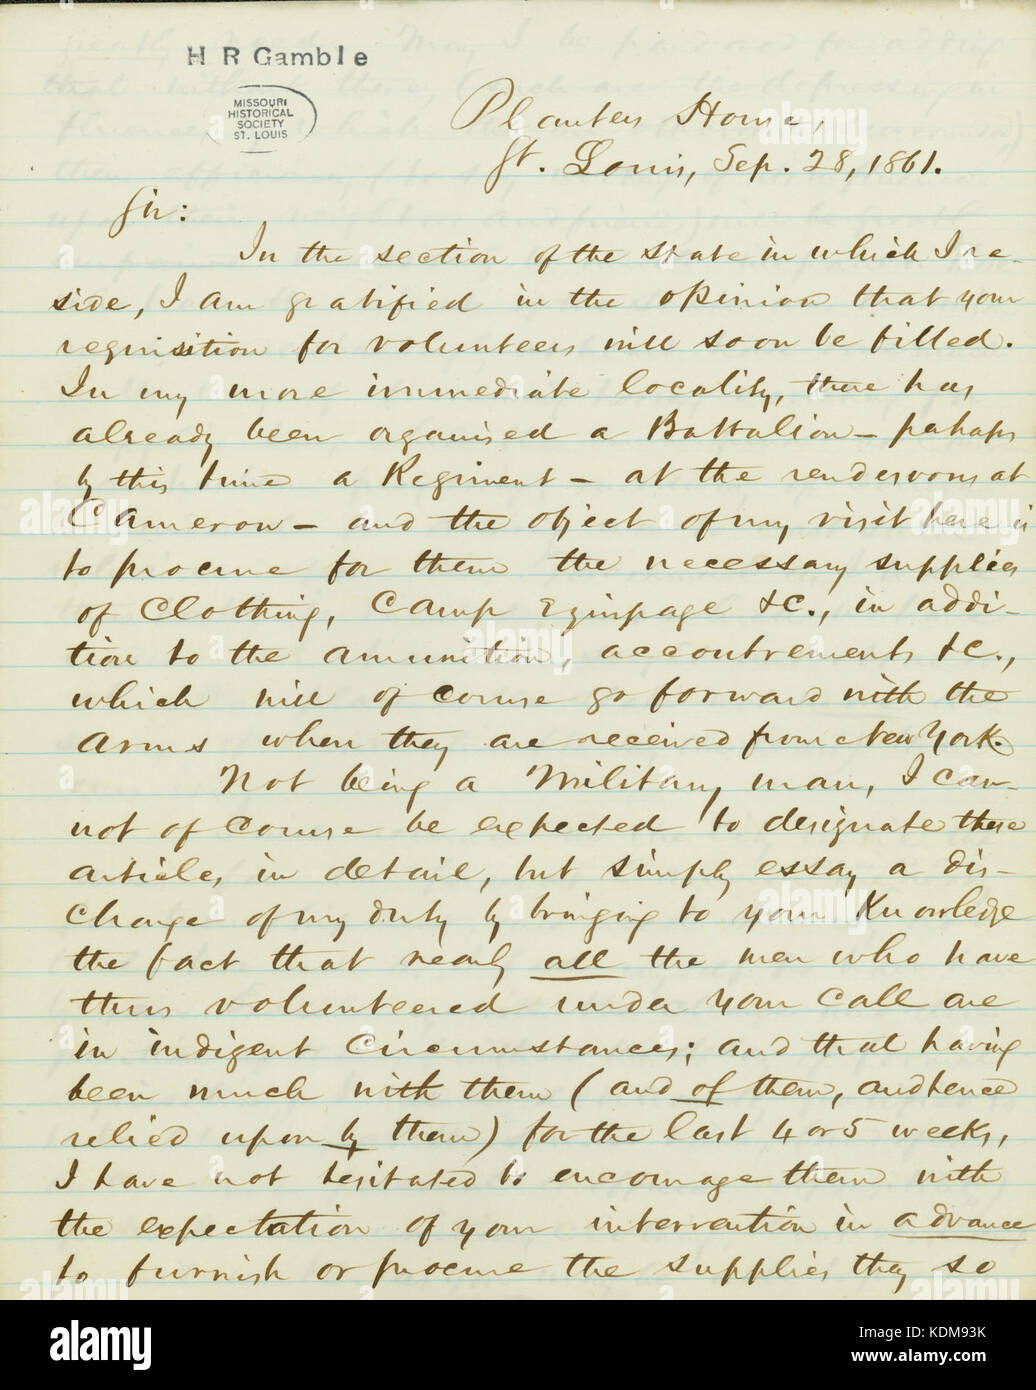 H R Gamble
MISSOURI
HISTORICAL
SOCIETY
ST. LOUIS
Planters House,
St. Louis, Sep. 28, 1861.
Sir:
In the section of the State in which I re-
side, I am gratified in the opinion that your
requisition for volunteers will soon be filled.
In my more immediate locality, there has
already been organised a Battalion – perhaps
by this time a Regiment – at the rendezvous at
Cameron – and the object of my visit here is
to procure for them the necessary supplies
of Clothing, Camp Equipage &c., in addi-
tion to the amunition, accoutrements &c.,
which will of course go forward with the
arms when they are received from New York.
Not being a Military man, I can-
not of course be expected to designate these
articles in detail, but simply essay a dis-
charge of my duty by bringing to your Knowledge
the fact that nearly all the men who have
thus volunteered under your Call are
in indigent Circumstances; and that having
been much with them (and of them, and hence
relied upon by them) for the last 4 or 5 weeks,
I have not hesitated to encourage them with
the expectation of your intervention in advance
to furnish or procure the supplies they so
alamy stock photo
KDM93K
www.alamy.com